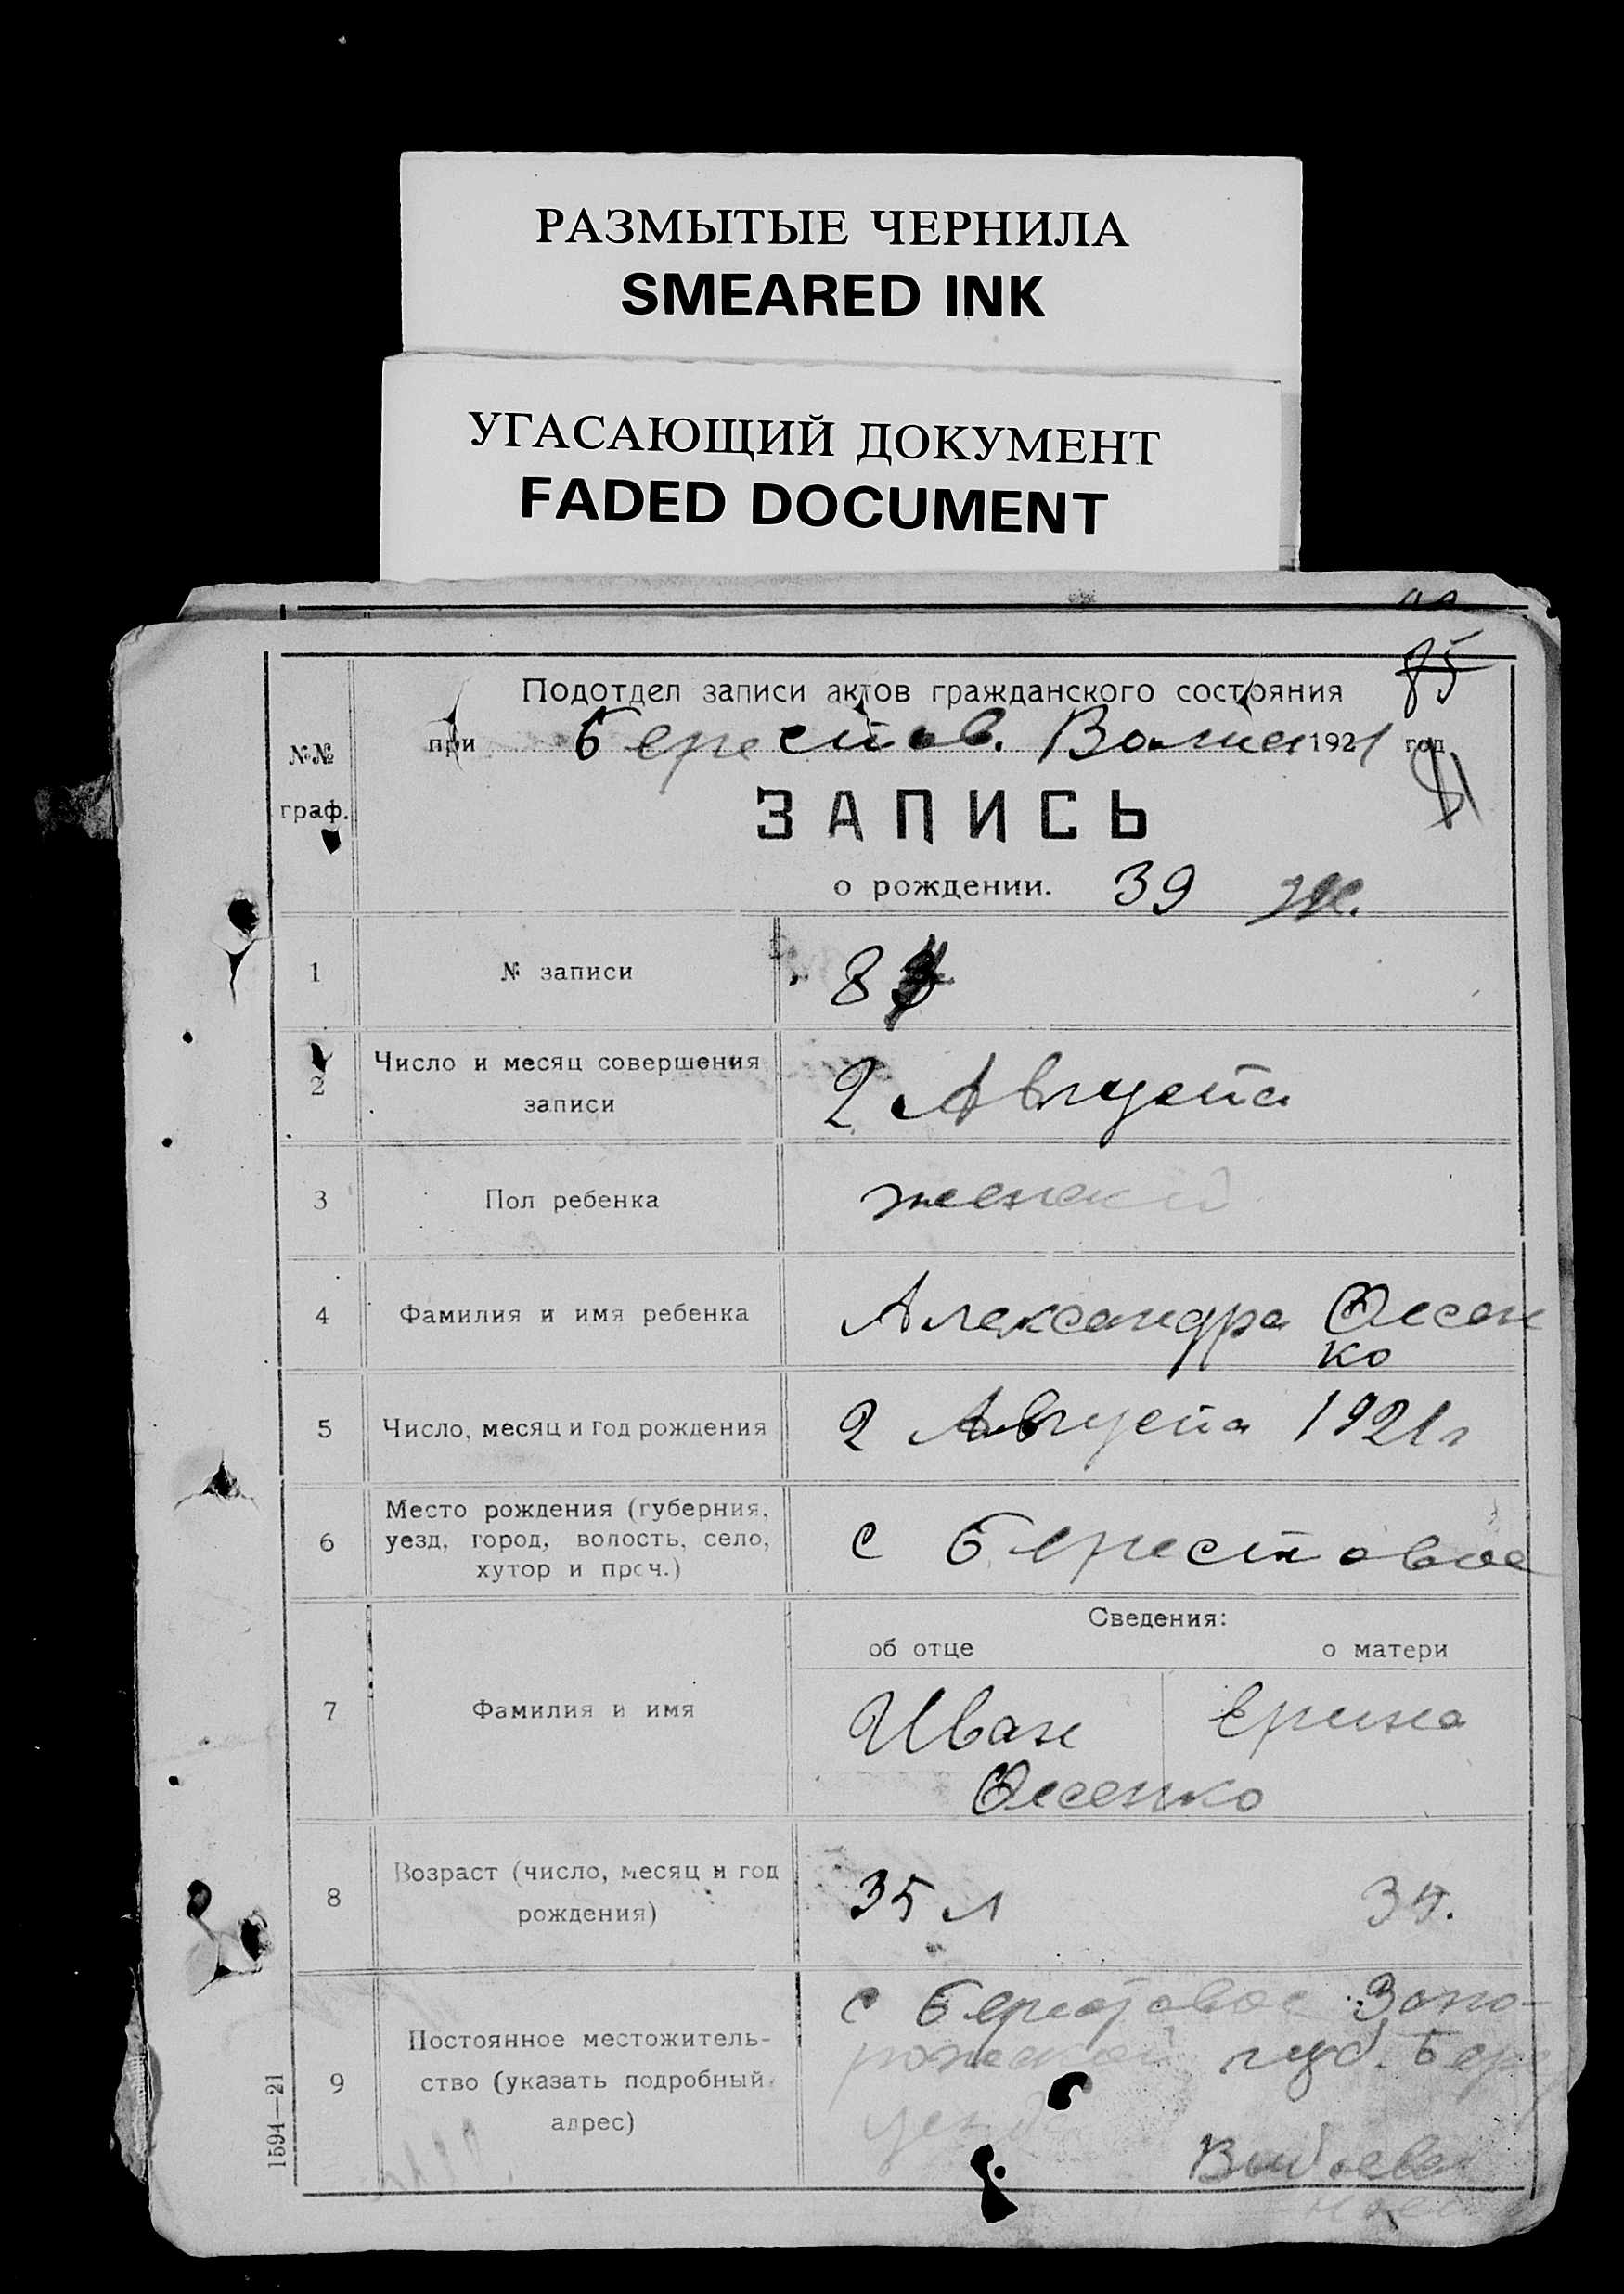 РАЗМЫТЫЕ ЧЕРНИЛА
SMEARED INK
УГАСАЮЩИЙ ДОКУМЕНТ
FADED DOCUMENT
85
Подотдел записи актов гражданского состояния
при Берестов. 1921 год
№№
граф.
ЗАПИСЬ
о рождении. 39 ж.
1 № записи 8
2 Число и месяц совершения
записи
2 Августа
3 Пол ребенка женский
4 Фамилия и имя ребенка Александра
ко
5 Число, месяц и год рождения 2 Августа 1921 г
6 Место рождения (губерния,
уезд, город, волость, село,
хутор и проч.)
с Берестовое
Сведения:
об отце о матери
7 Фамилия и имя
Иван Ерина
8 Возраст (число, месяц и год
рождения)
35 л 34.
9 Постоянное местожитель-
ство (указать подробный
адрес)
с Берестовое Запо-
рожской губ. Бер
уезд
1594—21